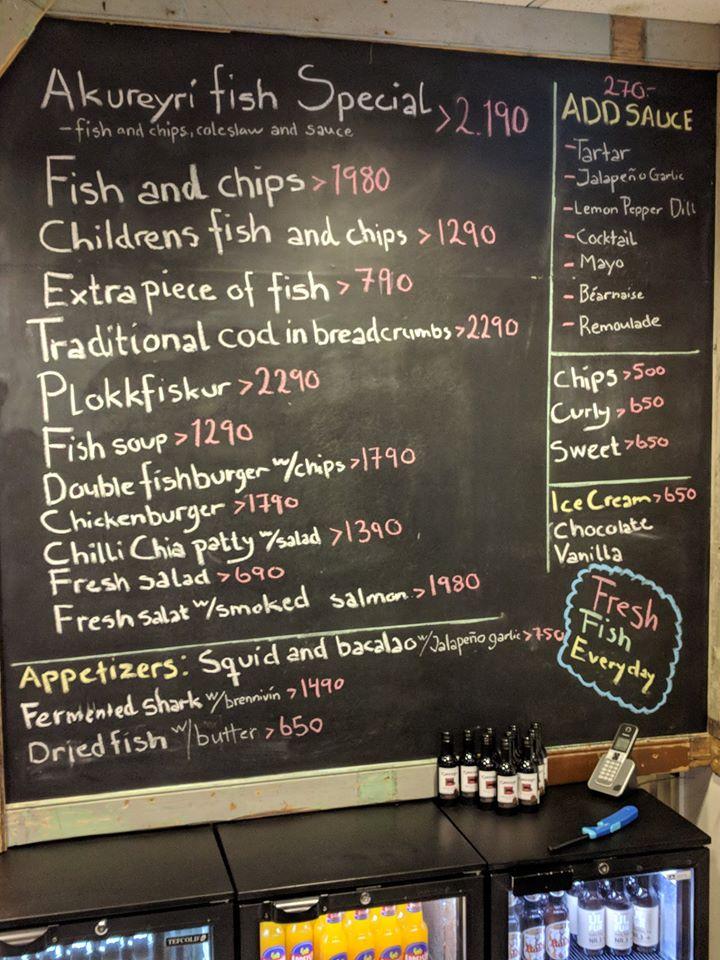 Akureyri fish Special >2.190
- fish and chips, coleslaw and sauce
Fish and chips >1980
Childrens fish and chips >1290
Extra piece of fish >790
Traditional cod in breadcrumbs >2290
Plokkfiskur >2290
Fish soup >1290
Double fishburger w/chips >1790
Chickenburger >1790
Chilli Chia patty w/salad >1390
Fresh salad >690
Fresh salat w/smoked salmon >1980
Appetizers: Squid and bacalao w/Jalapeño garlic >750
Fermented shark w/brennivín >1490
Dried fish w/butter >650
270-
ADD SAUCE
- Tartar
- Jalapeño Garlic
- Lemon Pepper Dill
- Cocktail
- Mayo
- Béarnaise
- Remoulade
Chips >500
Curly >650
Sweet >650
Ice Cream >650
Chocolate
Vanilla
Fresh
Fish
Everyday
TEFCOLD
ÚL